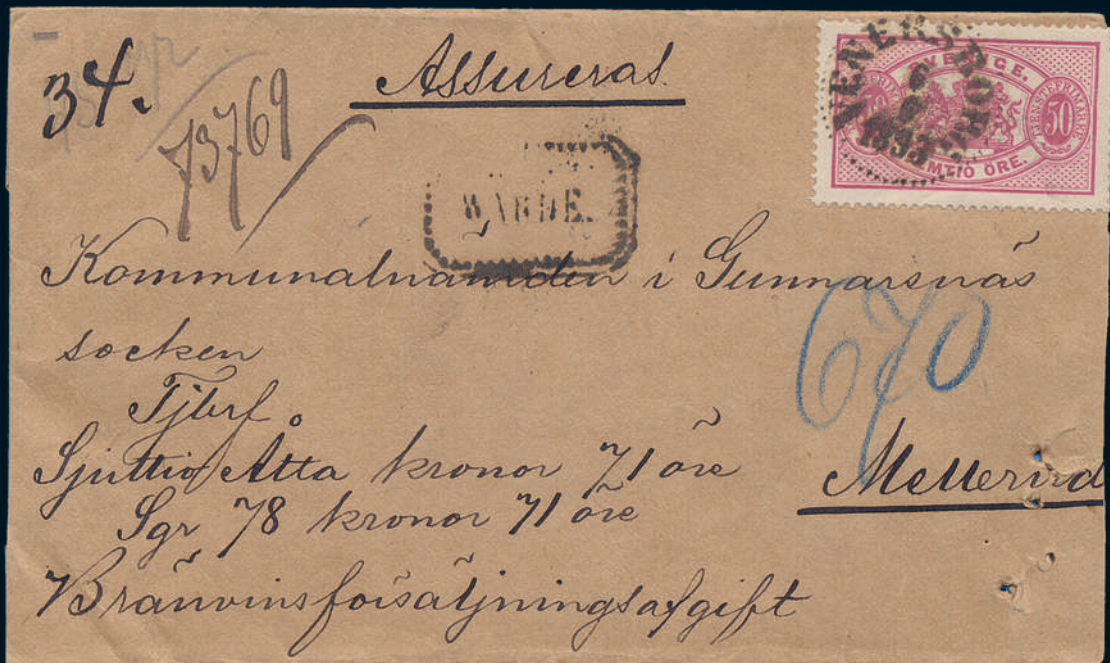 34.
73769
Assureras
VENERSBORG
6
8
1893
SVERIGE.
TJENSTEFRIMARKE
50
FEMTIO ÖRE.
WÄRDE.
Kommunalnämden i Gunnarsnäs
socken
Tjbrf.
670
Sjuttio Åtta kronor 71 öre
Mellerud
Sgr 78 kronor 71 öre
Bränvinsförsäljningsafgift